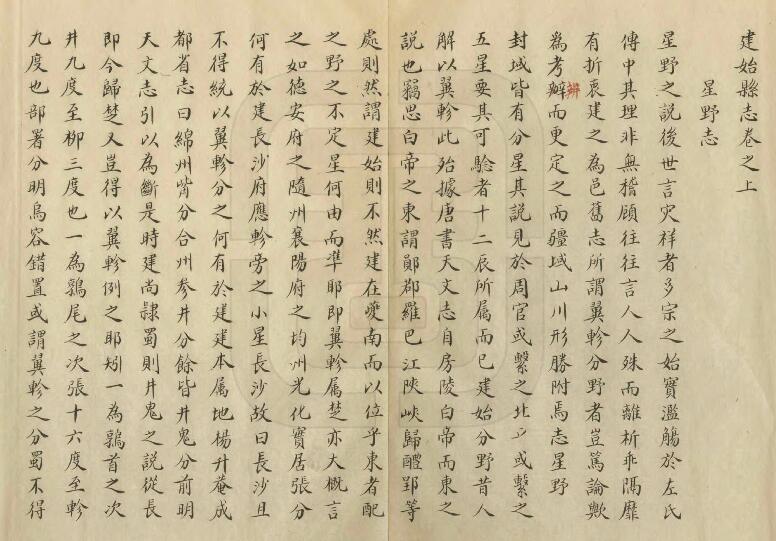 建始縣志卷之上
星野志
星野之説後世言灾祥者多宗之始實濫觴於左氏
傳中其理非無稽顧往往言人人殊而離析乖隔靡
有折衷建之為邑舊志所謂翼軫分野者豈篤論歟
為考辯辨而更定之而疆域山川形勝附焉志星野
封域皆有分星其説見於周官或繫之北斗或繫之
五星要其可騐者十二辰所属而已建始分野昔人
解以翼軫此殆據唐書天文志自房陵白帝而東之
説也竊思白帝之東謂鄖郡羅巴江陜峽歸醴郢等
處則然謂建始則不然建在夔南而以位乎東者配
之野之不定星何由而凖耶即翼軫属楚亦大概言
之如德安府之隨州襄陽府之均州光化實居張分
何有於建長沙府應軫旁之小星長沙故曰長沙且
不得統以翼軫分之何有於建建本属地楊升菴成
都省志曰綿州觜分合州参井分餘皆井鬼分前明
天文志引以為斷是時建尚隸蜀則井鬼之説從長
即今歸楚又豈得以翼軫例之耶矧一為鶉首之次
井九度至柳三度也一為鶉尾之次張十六度至軫
九度也部署分明烏容錯置或謂翼軫之分蜀不得